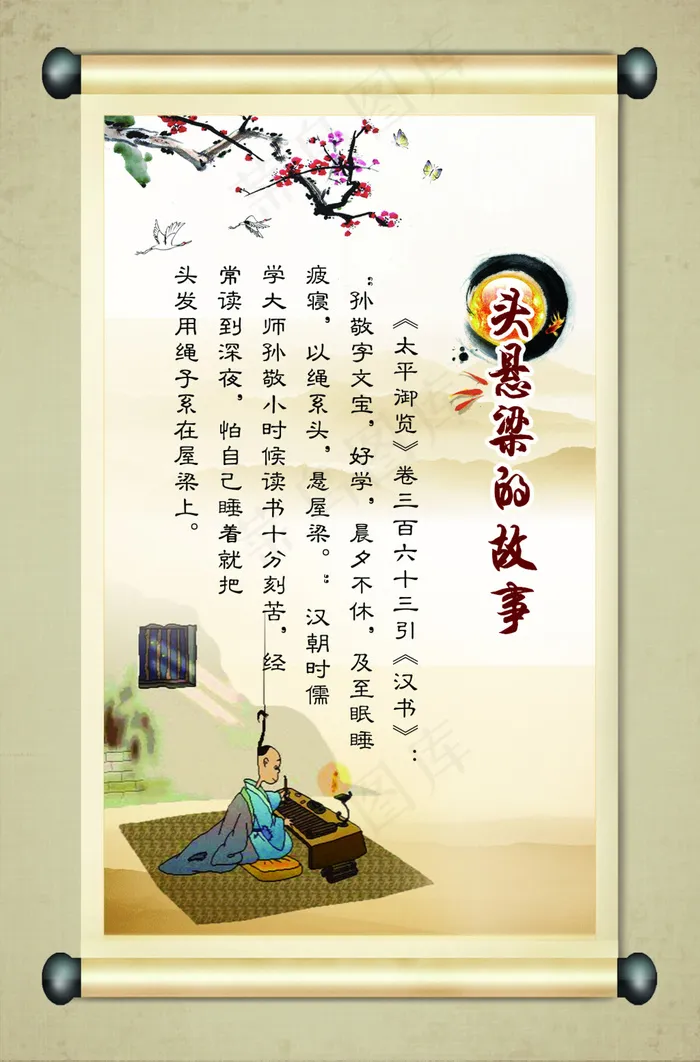 头悬梁的故事
《太平御览》卷三百六十三引《汉书》:
“孙敬字文宝,好学,晨夕不休,及至眠睡
疲寝,以绳系头,悬屋梁。”汉朝时儒
学大师孙敬小时候读书十分刻苦,经
常读到深夜,怕自己睡着就把
头发用绳子系在屋梁上。